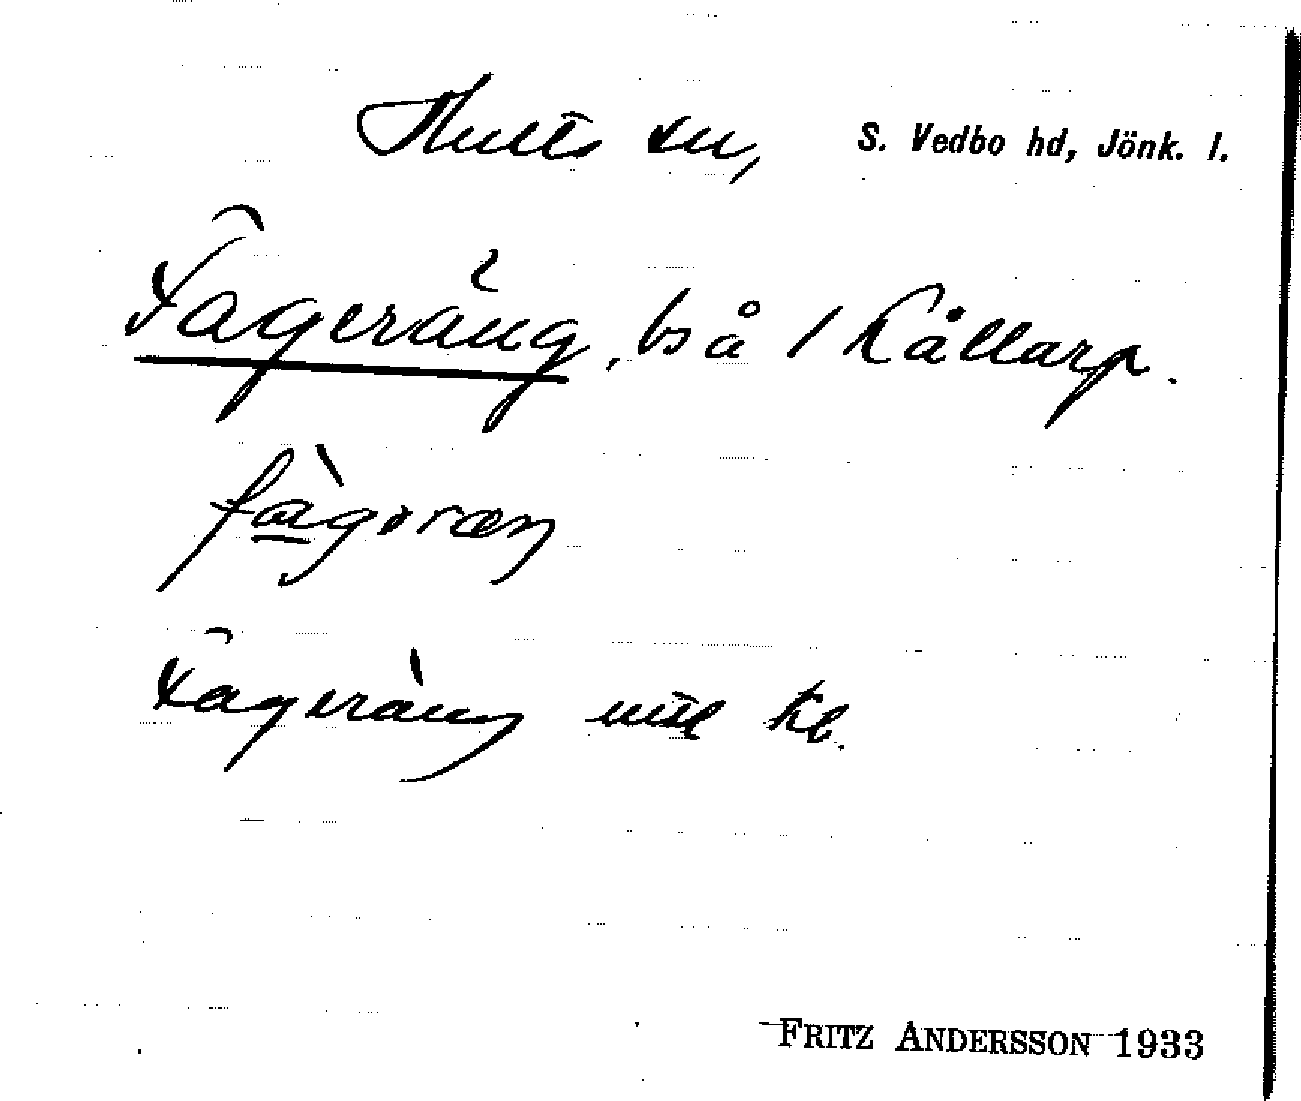 Hults sn, S. Vedbo hd, Jönk. l.
Fageräng, bs å 1 Kållarp.
Fageräng utl Kb.
FRITZ ANDERSSON 1933